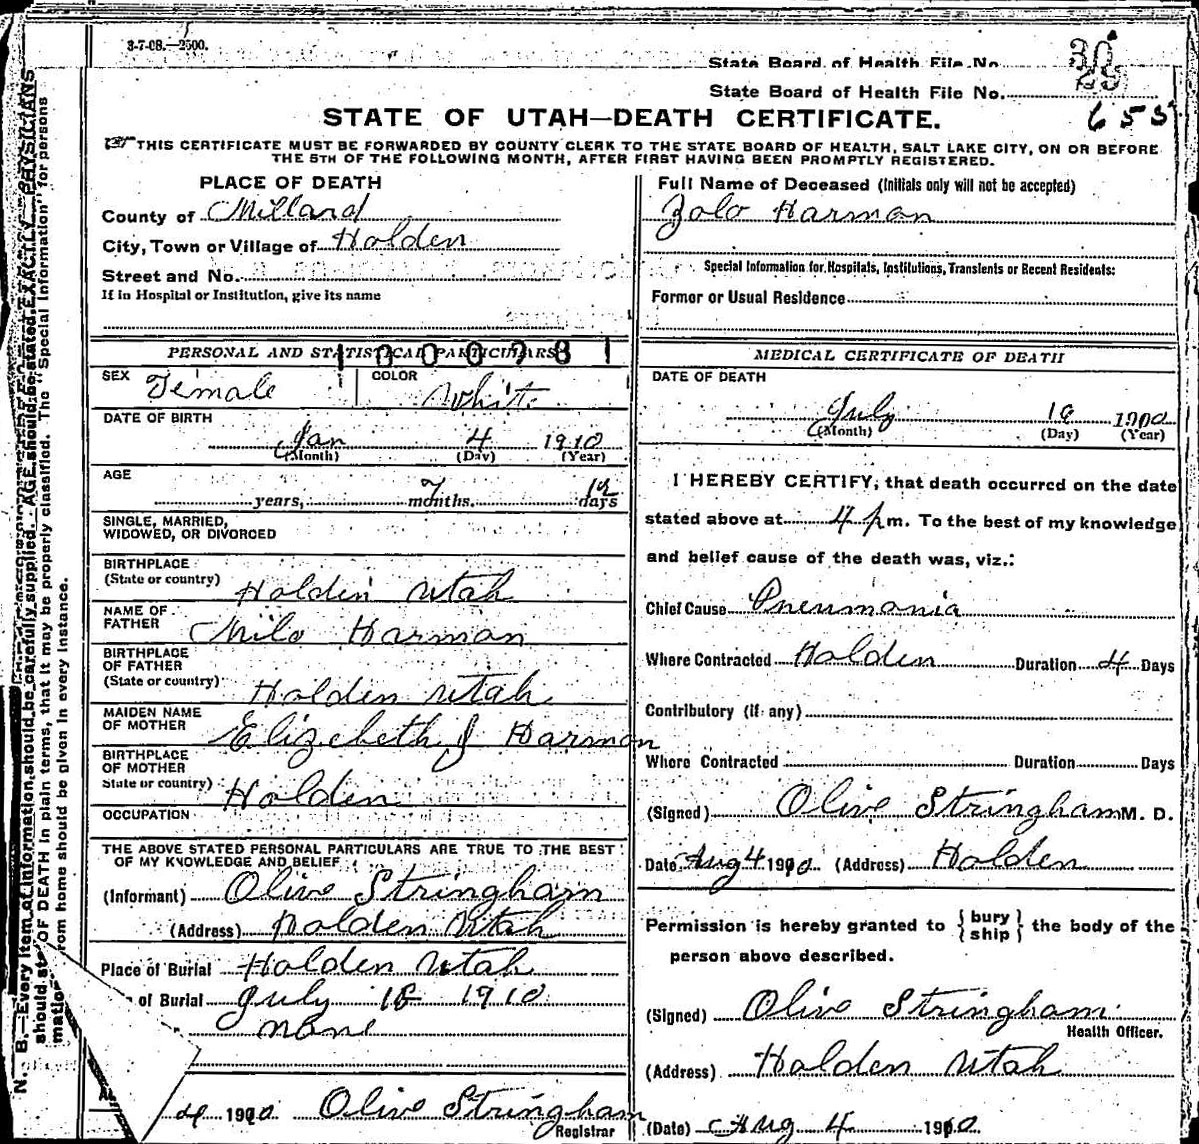 3-7-08.—2500.
State Board of Health File No.
State Board of Health File No.
655
STATE OF UTAH—DEATH CERTIFICATE.
THIS CERTIFICATE MUST BE FORWARDED BY COUNTY CLERK TO THE STATE BOARD OF HEALTH, SALT LAKE CITY, ON OR BEFORE
THE 5TH OF THE FOLLOWING MONTH, AFTER FIRST HAVING BEEN PROMPTLY REGISTERED.
PLACE OF DEATH
County of Millard
City, Town or Village of Holden
Street and No.
If in Hospital or Institution, give its name
Full Name of Deceased (Initials only will not be accepted)
Zolo Harmon
Special Information for Hospitals, Institutions, Transients or Recent Residents:
Former or Usual Residence
PERSONAL AND STATISTICAL PARTICULARS
SEX Female COLOR White
DATE OF BIRTH
Jan 4 1910
(Month) (Day) (Year)
AGE
years, 7 months. 12 days
SINGLE, MARRIED,
WIDOWED, OR DIVORCED
BIRTHPLACE
(State or country) Holden Utah
NAME OF
FATHER Milo Harman
BIRTHPLACE
OF FATHER
(State or country) Holden Utah
MAIDEN NAME
OF MOTHER Elizebeth J Harmon
BIRTHPLACE
OF MOTHER
State or country) Holden
OCCUPATION
THE ABOVE STATED PERSONAL PARTICULARS ARE TRUE TO THE BEST
OF MY KNOWLEDGE AND BELIEF
(Informant) Olive Stringham
(Address) Holden Utah
Place of Burial Holden Utah
of Burial July 18 1910
None
4 1910 Olive Stringham
Registrar
MEDICAL CERTIFICATE OF DEATH
DATE OF DEATH
July 1900
(Month) (Day) (Year)
I HEREBY CERTIFY, that death occurred on the date
stated above at 4 p m. To the best of my knowledge
and belief cause of the death was, viz.:
Chief Cause Pneumania
Where Contracted Holden Duration 4 Days
Contributory (if any)
Where Contracted Duration Days
(Signed) Olive Stringham M. D.
Date Aug 4 1910 (Address) Holden
Permission is hereby granted to { bury ship } the body of the
person above described.
(Signed) Olive Stringham
Health Officer.
(Address) Holden Utah
(Date) Aug 4 1910.
N. B.—Every item of information should be carefully supplied. AGE should be stated EXACTLY. PHYSICIANS
should st OF DEATH in plain terms, that it may be properly classified. The "Special Information" for persons
rom home should be given in every instance.